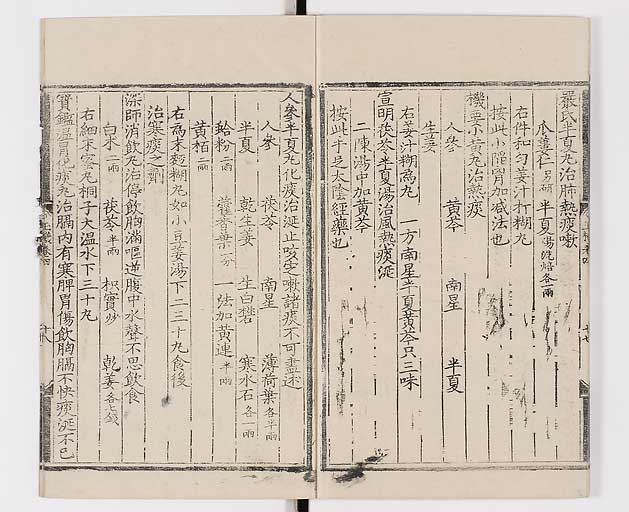 嚴氏半夏丸治肺熱痰嗽
瓜蔞仁另研 半夏湯洗焙各一兩
右件和勻姜汁打糊丸
按此小陷胃加减法也
機要小黃丸治熱痰
人參 黃芩 南星 半夏
生姜
右姜汁糊爲丸 一方南星半夏黃芩只三味
宣明茯苓半夏湯治風熱痰涎
二陳湯中加黃芩
按此手足太陰經藥也
人參半夏丸化痰治涎止咳定喘諸痰不可盡述
人參 茯苓 南星 薄荷葉各半兩
半夏 乾生姜 生白礬 寒水石各一兩
蛤粉二兩 藿香葉一分 一法加黃連半兩
黃栢二兩
右爲末麪糊丸如小豆姜湯下二三十丸食後
治寒痰之劑
深師消飲丸治停飲胸滿嘔逆腹中水聲不思飲食
白朮二兩 茯苓半兩 枳實炒 乾姜各七錢
右細末蜜丸桐子大温水下三十丸
寳鑑温胃化痰丸治膈内有寒脾胃傷飲胸膈不快痰涎不已